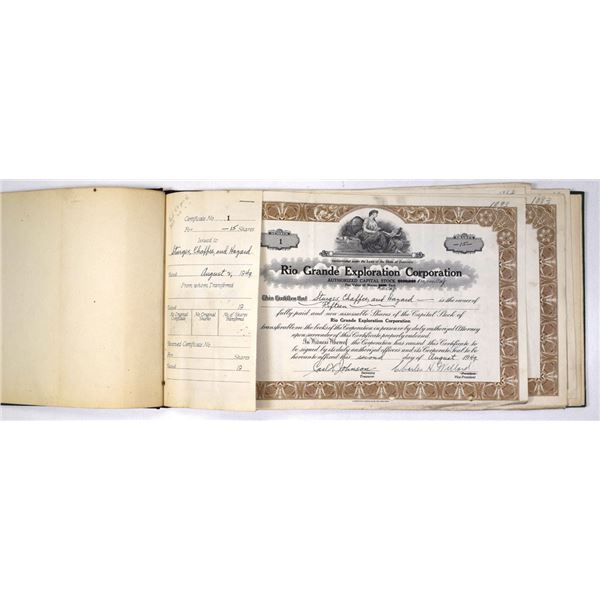 Certificate No 1
For —15 Shares
Issued to
Sturges, Chaffee, and Hazard
Dated August 2, 1949
From whom Transferred
Dated 19
No Original Certificate
No Original Shares
No. of Shares Transferred
Received Certificate No
For Shares
19
1
—15—
Rio Grande Exploration Corporation
AUTHORIZED CAPITAL STOCK
This Certifies that Sturges, Chaffee, and Hazard is the owner of
Fifteen
fully paid and non assessable Shares of the Capital Stock of
Rio Grande Exploration Corporation
transferable on the books of the Corporation in person or by duly authorized Attorney
upon surrender of this Certificate properly endorsed.
In Witness Whereof, the Corporation has caused this Certificate to
be signed by its duly authorized officers and its Corporate Seal to be
hereunto affixed this second day of August 1949
Carl N. Johnson
Charles H. Willard
Secretary
Treasurer
President
Vice-President